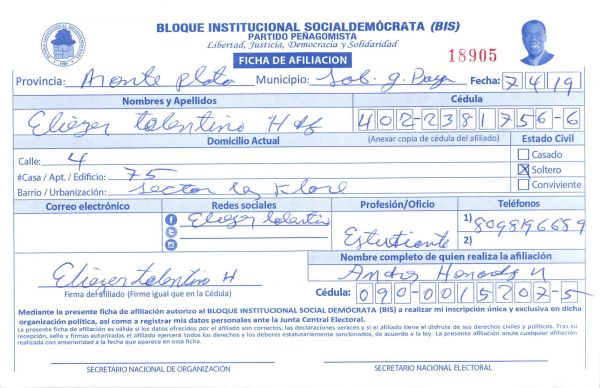 BLOQUE INSTITUCIONAL SOCIALDEMÓCRATA (BIS)
PARTIDO PEÑAGOMISTA
Libertad, Justicia, Democracia y Solidaridad
FICHA DE AFILIACION
18905
Provincia: Monte Plata Municipio: Fecha: 7/4/19
Nombres y Apellidos Cédula
Eliezer Tolentino 402-2381756-6
Domicilio Actual (Anexar copia de cédula del afiliado) Estado Civil
Calle: 4 Casado
#Casa / Apt. / Edificio: 75 Soltero
Barrio / Urbanización: Sector Conviviente
Correo electrónico Redes sociales Profesión/Oficio Teléfonos
Eliezer Tolentino Estudiante 1) 8098196689
2)
Nombre completo de quien realiza la afiliación
Eliezer Tolentino H
Firma del afiliado (Firme igual que en la Cédula) Cédula: 090-0015207-5
Mediante la presente ficha de afiliación autorizo al BLOQUE INSTITUCIONAL SOCIAL DEMÓCRATA (BIS) a realizar mi inscripción única y exclusiva en dicha
organización política, así como a registrar mis datos personales ante la Junta Central Electoral.
La presente ficha de afiliación es válida si los datos ofrecidos por el afiliado son correctos, las declaraciones veraces y si el afiliado tiene el disfrute de sus derechos civiles y políticos. Tras su
recepción, sello y firmas autorizadas el afiliado ejercerá todos los derechos y los deberes estatutariamente sancionados, de acuerdo a la ley. La presente afiliación anula cualquier afiliación
realizada con anterioridad a la fecha que aparece en esta ficha.
SECRETARIO NACIONAL DE ORGANIZACIÓN SECRETARIO NACIONAL ELECTORAL